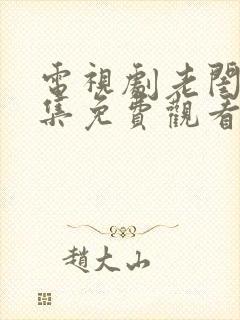 電視劇老閨
集免費觀看
趙大山